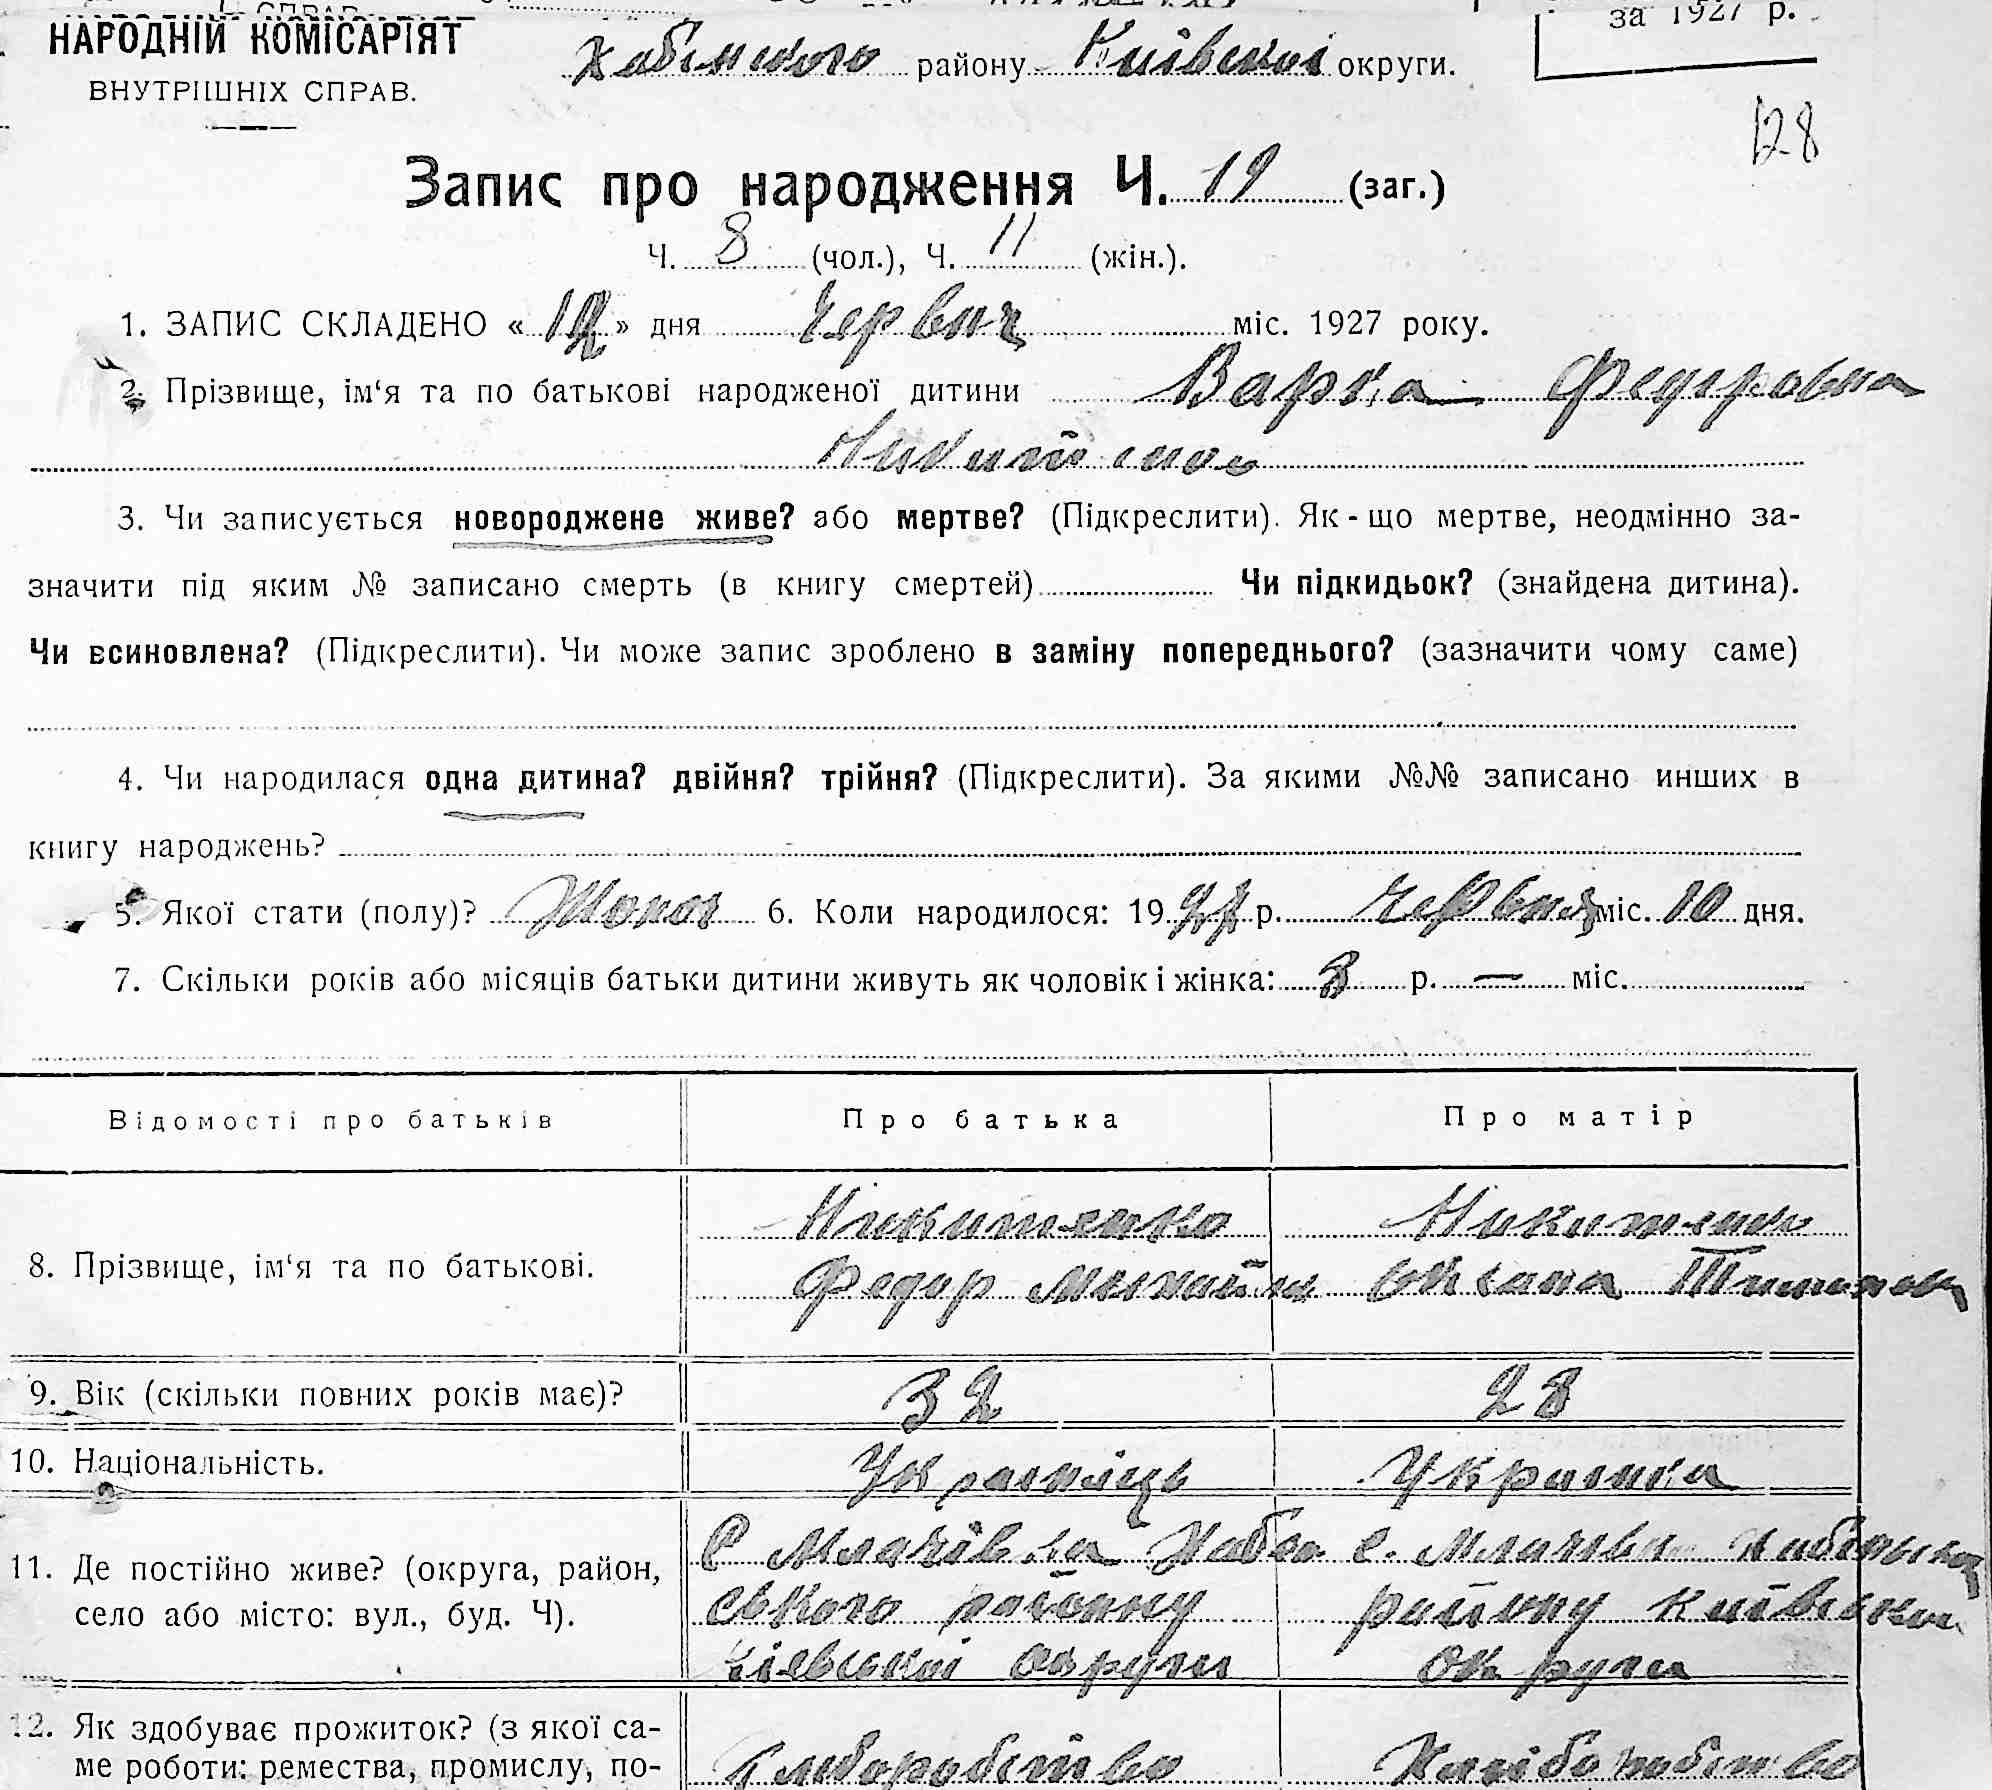 за 1927 р.
НАРОДНІЙ КОМІСАРІЯТ
ВНУТРІШНІХ СПРАВ.
Хабенського району Київської округи.
128
Запис про народження Ч. 19 (заг.)
Ч. 8 (чол.), Ч. 11 (жін.).
1. ЗАПИС СКЛАДЕНО « 12 » дня Червня міс. 1927 року.
2. Прізвище, ім‘я та по батькові народженої дитини Варка Федоровна
Никитенко
3. Чи записується новороджене живе? або мертве? (Підкреслити). Як-що мертве, неодмінно за-
значити під яким № записано смерть (в книгу смертей) Чи підкидьок? (знайдена дитина).
Чи всиновлена? (Підкреслити). Чи може запис зроблено в заміну попереднього? (зазначити чому саме)
4. Чи народилася одна дитина? двійня? трійня? (Підкреслити). За якими №№ записано инших в
книгу народжень?
5. Якої стати (полу)? 6. Коли народилося: 1927 р. Червня міс. 10 дня.
7. Скільки років або місяців батьки дитини живуть як чоловік і жінка: 8 р. — міс.
Відомості про батьків Про батька Про матір
8. Прізвище, ім‘я та по батькові.
Никитенко Никитенко
Федор Михайло Оксана
9. Вік (скільки повних років має)? 32 28
10. Національність. Українець Українка
11. Де постійно живе? (округа, район,
село або місто: вул., буд. Ч).
С Млачівка Хабен с. Млачівка Хабенського
ського району району Київської
Київської округи округи
12. Як здобуває прожиток? (з якої са-
ме роботи: ремества, промислу, по-
Хліборобство Хліборобство